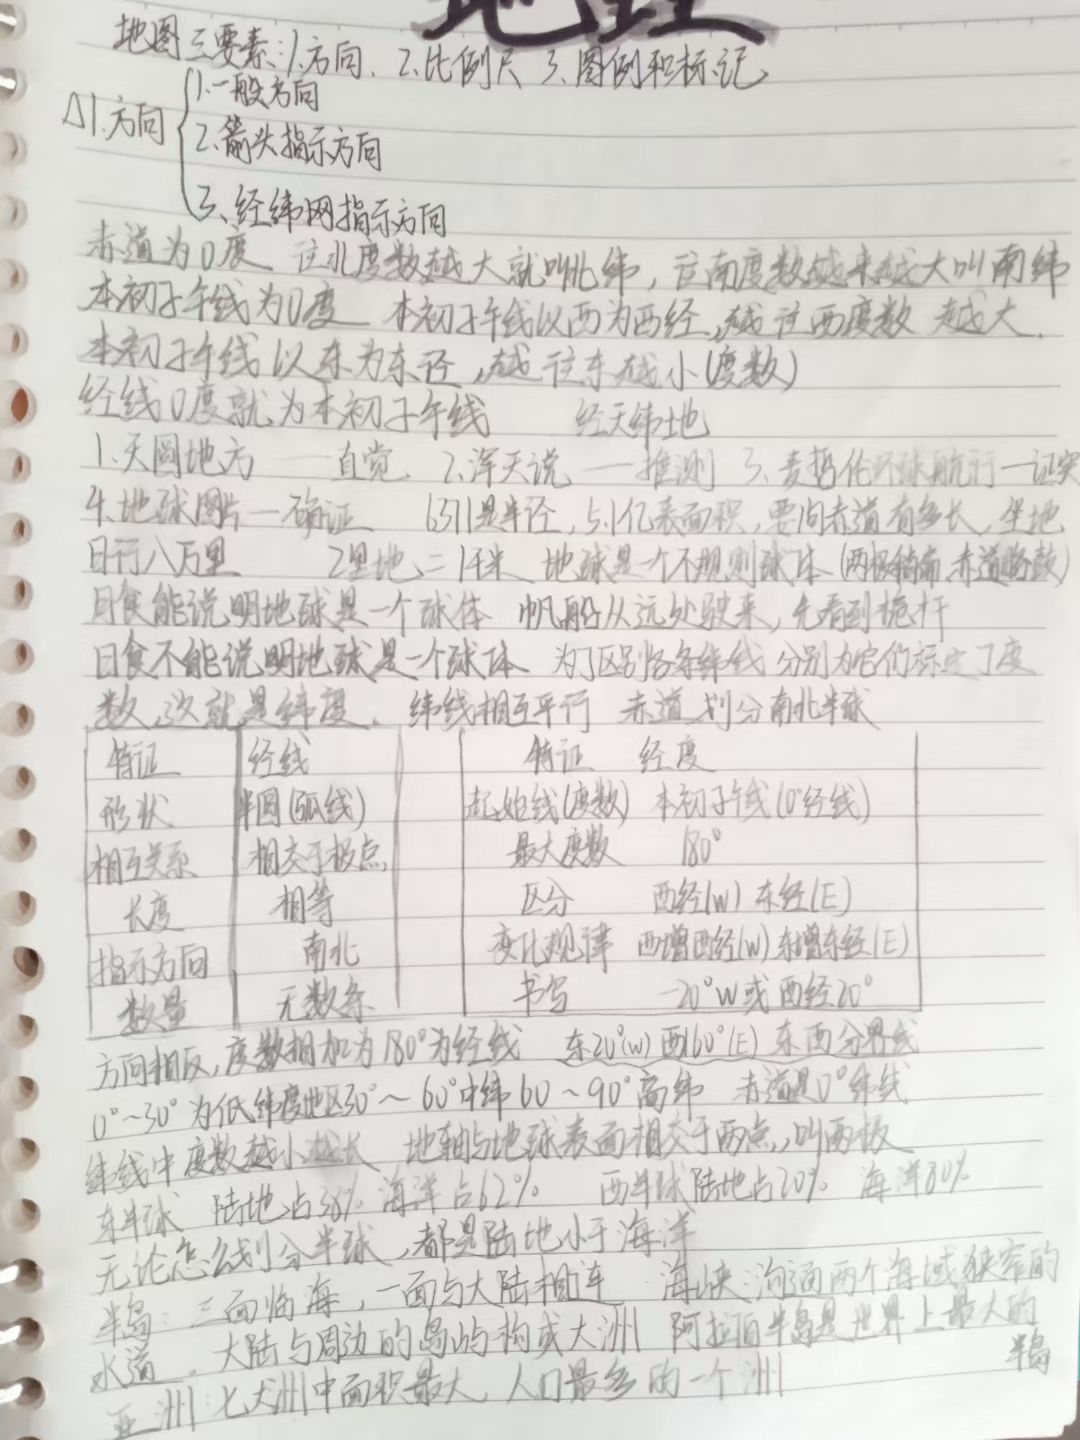 地理
地图三要素:1.方向、2.比例尺 3.图例和标记
△1.方向
1.一般方向
2.箭头指示方向
3、经纬网指示方向
赤道为0度 往北度数越大就叫北纬,往南度数越来越大叫南纬
本初子午线为0度 本初子午线以西为西经,越往西度数越大.
本初子午线以东为东径,越往东越小(度数)
经线0度就为本初子午线 经天纬地
1.天圆地方——直觉、2.浑天说——推测 3、麦哲伦环球航行—证实
4.地球图片—确证 6311是半径,5.1亿表面积,要问赤道有多长,坐地
日行八万里 2里地=1千米 地球是一个不规则球体(两极稍扁,赤道略鼓)
月食能说明地球是一个球体 帆船从远处驶来,先看到桅杆
日食不能说明地球是一个球体 为了区别各条纬线分别为它们标定了度
数,这就是纬度、纬线相互平行 赤道划分南北半球
特证 经线 特证 经度
形状 半圆(弧线) 起始线(度数) 本初子午线(0°经线)
相互关系 相交于极点, 最大度数 180°
长度 相等 区分 西经(W) 东经(E)
指示方向 南北 变化规律 西增西经(W) 东增东经(E)
数量 无数条 书写 -20°W或西经20°
方向相反,度数相加为180°为经线 东20°(W)西160°(E)东西分界线
0°~30°为低纬度地区30°~60°中纬60~90°高纬 赤道是0°纬线
纬线中度数越小越长 地轴与地球表面相交于两点,叫两极
东半球 陆地占38% 海洋占62% 西半球陆地占20% 海洋80%
无论怎么划分半球,都是陆地小于海洋
半岛:三面临海,一面与大陆相连 海峡:沟通两个海域狭窄的
水道. 大陆与周边的岛屿构成大洲 阿拉伯半岛是世界上最大的
半岛
亚洲:七大洲中面积最大,人口最多的一个洲